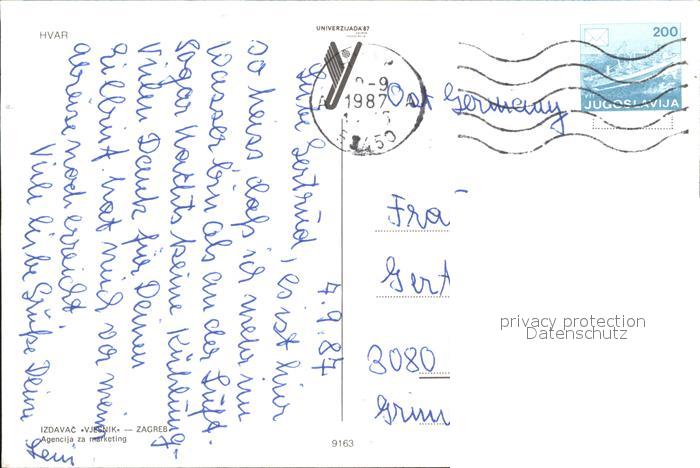 HVAR
UNIVERZIJADA'87
200
JUGOSLAVIJA
-9
1987
450
Ost Germany
4.9.87
Liebe Gertrud, es ist hier
so heiss daß ich mehr im
Wasser bin als an der Luft.
Sogar nachts keine Kühlung.
Vielen Dank für Deinen
Brief, hat mich vor meiner
abreise noch erreicht.
Viele liebe Grüße Deine
Leni
Fra
Gert
3080
Grim
privacy protection
Datenschutz
IZDAVAČ •VJESNIK• — ZAGREB
Agencija za marketing
9163